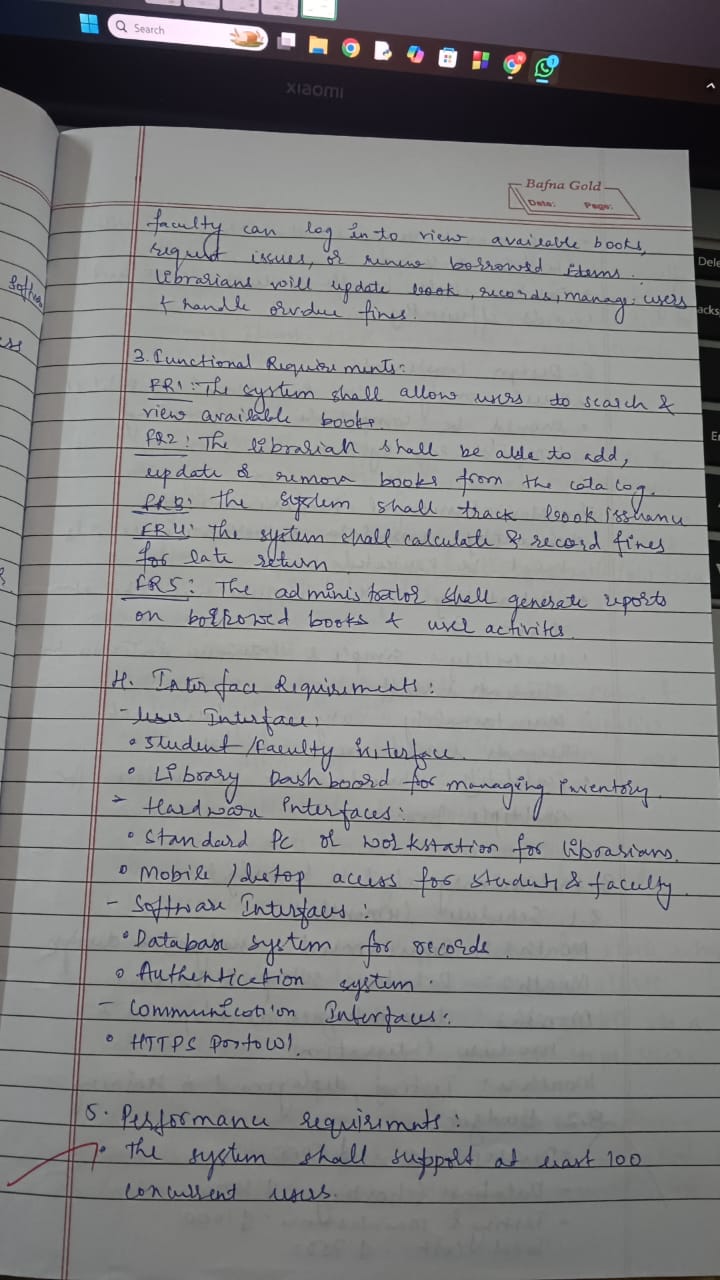 Search
xiaomi
Bafna Gold
Date: Page:
faculty can log in to view available books,
request issues, or renew borrowed items.
librarians will update book, records, manage users
& handle orvdue fines.
3. functional Requirements:
FR1: The system shall allow users to search &
view available books.
FR2: The librarian shall be able to add,
update & remove books from the catalog.
FR3: The system shall track book issuance
FR4: The system shall calculate & record fines
for late return
FR5: The administrator shall generate reports
on borrowed books & user activites.
4. Interface Requirements:
- User Interface:
• Student/Faculty interface.
• Library Dashboard for managing inventory.
- Hardware Interfaces:
• Standard PC or workstation for librarians.
• Mobile / access for students & faculty.
- Software Interfaces:
• Database system for records.
• Authentication system.
- Communication Interfaces:
• HTTPS
5. Performance requirements:
• The system shall support at least 100
concurrent users.
Dele
acks